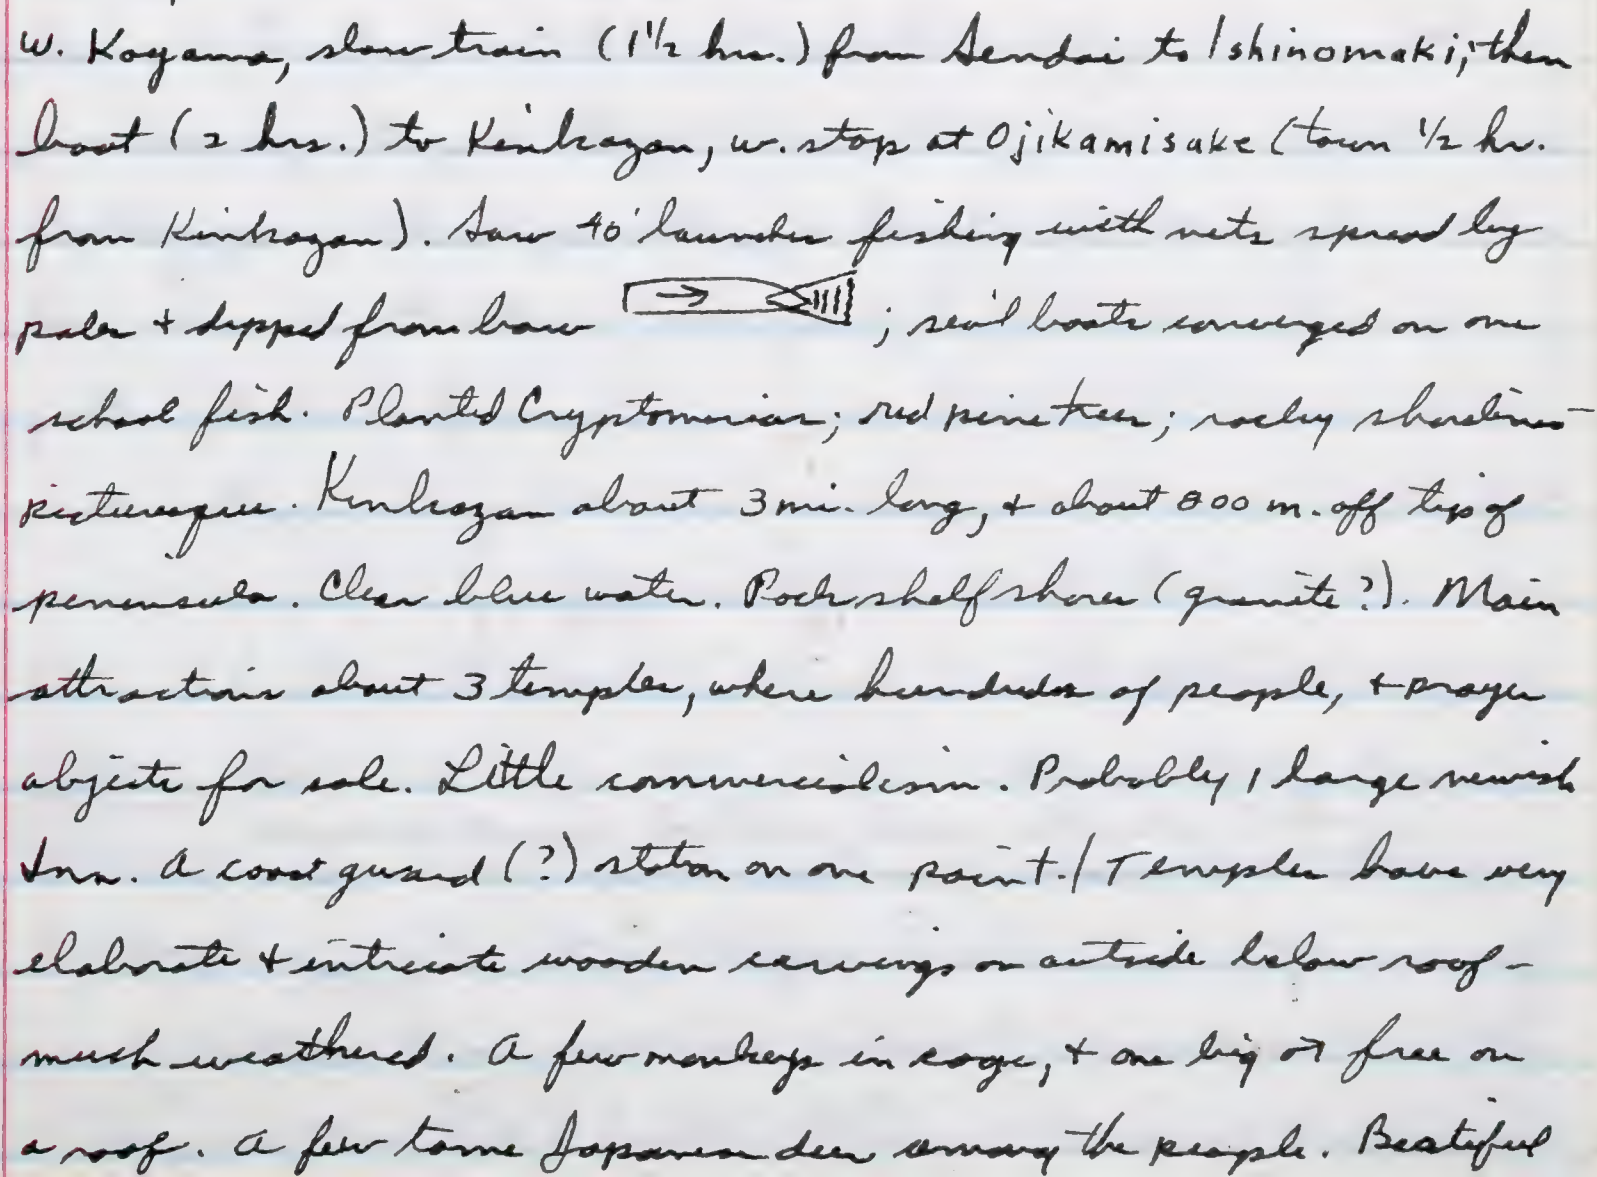 W. Koyama, slow train (1 1/2 hrs.) from Sendai to Ishinomaki; then
boat (2 hrs.) to Kinkazan, w. stop at Ojikamisake (town 1/2 hr.
from Kinkazan). Saw 40' launches fishing with nets spread by
poles + dipped from bow ; sev'l boats converged on one
school fish. Planted Cryptomerias; red pine trees; rocky shorelines -
picturesque. Kinkazan about 3 mi. long, + about 800 m. off tip of
peninsula. Clear blue water. Rock shelf shores (granite?). Main
attractions about 3 temples, where hundreds of people, + prayer
objects for sale. Little commercialism. Probably 1 large newish
Inn. A coast guard (?) station on one point. / Temples have very
elaborate + intricate wooden carvings on outside below roof -
much weathered. A few monkeys in cage, + one big ♂ free on
a roof. A few tame Japanese deer among the people. Beatiful